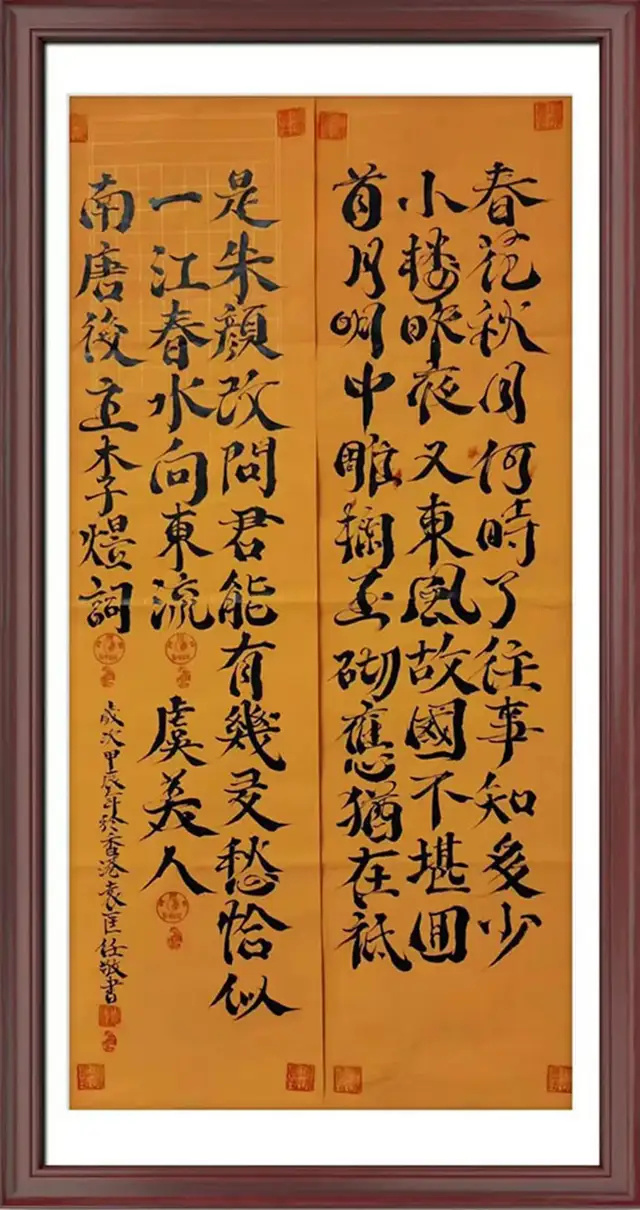 春花秋月何時了往事知多少
小樓昨夜又東風故國不堪回
首月明中雕欄玉砌應猶在祗
是朱顏改問君能有幾多愁恰似
一江春水向東流 虞美人
南唐後主李煜詞
歲次甲辰年於香港袁匡任敬書